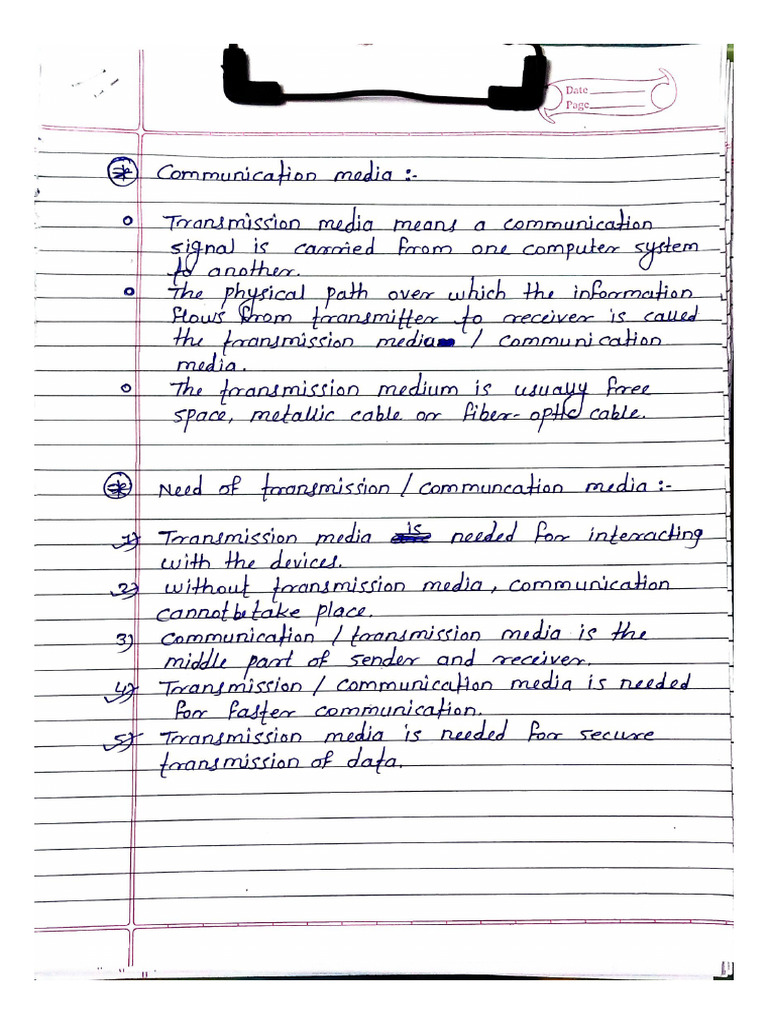 Date
Page
Communication media :-
Transmission media means a communication
signal is carried from one computer system
to another.
The physical path over which the information
flows from transmitter to receiver is called
the transmission media / communication
media.
The transmission medium is usually free
space, metallic cable or fiber-optic cable.
Need of transmission / communcation media :-
1) Transmission media is needed for interacting
with the devices.
2) without transmission media, communication
cannot be take place.
3) Communication / transmission media is the
middle part of sender and receiver.
4) Transmission / communication media is needed
for faster communication.
5) Transmission media is needed for secure
transmission of data.